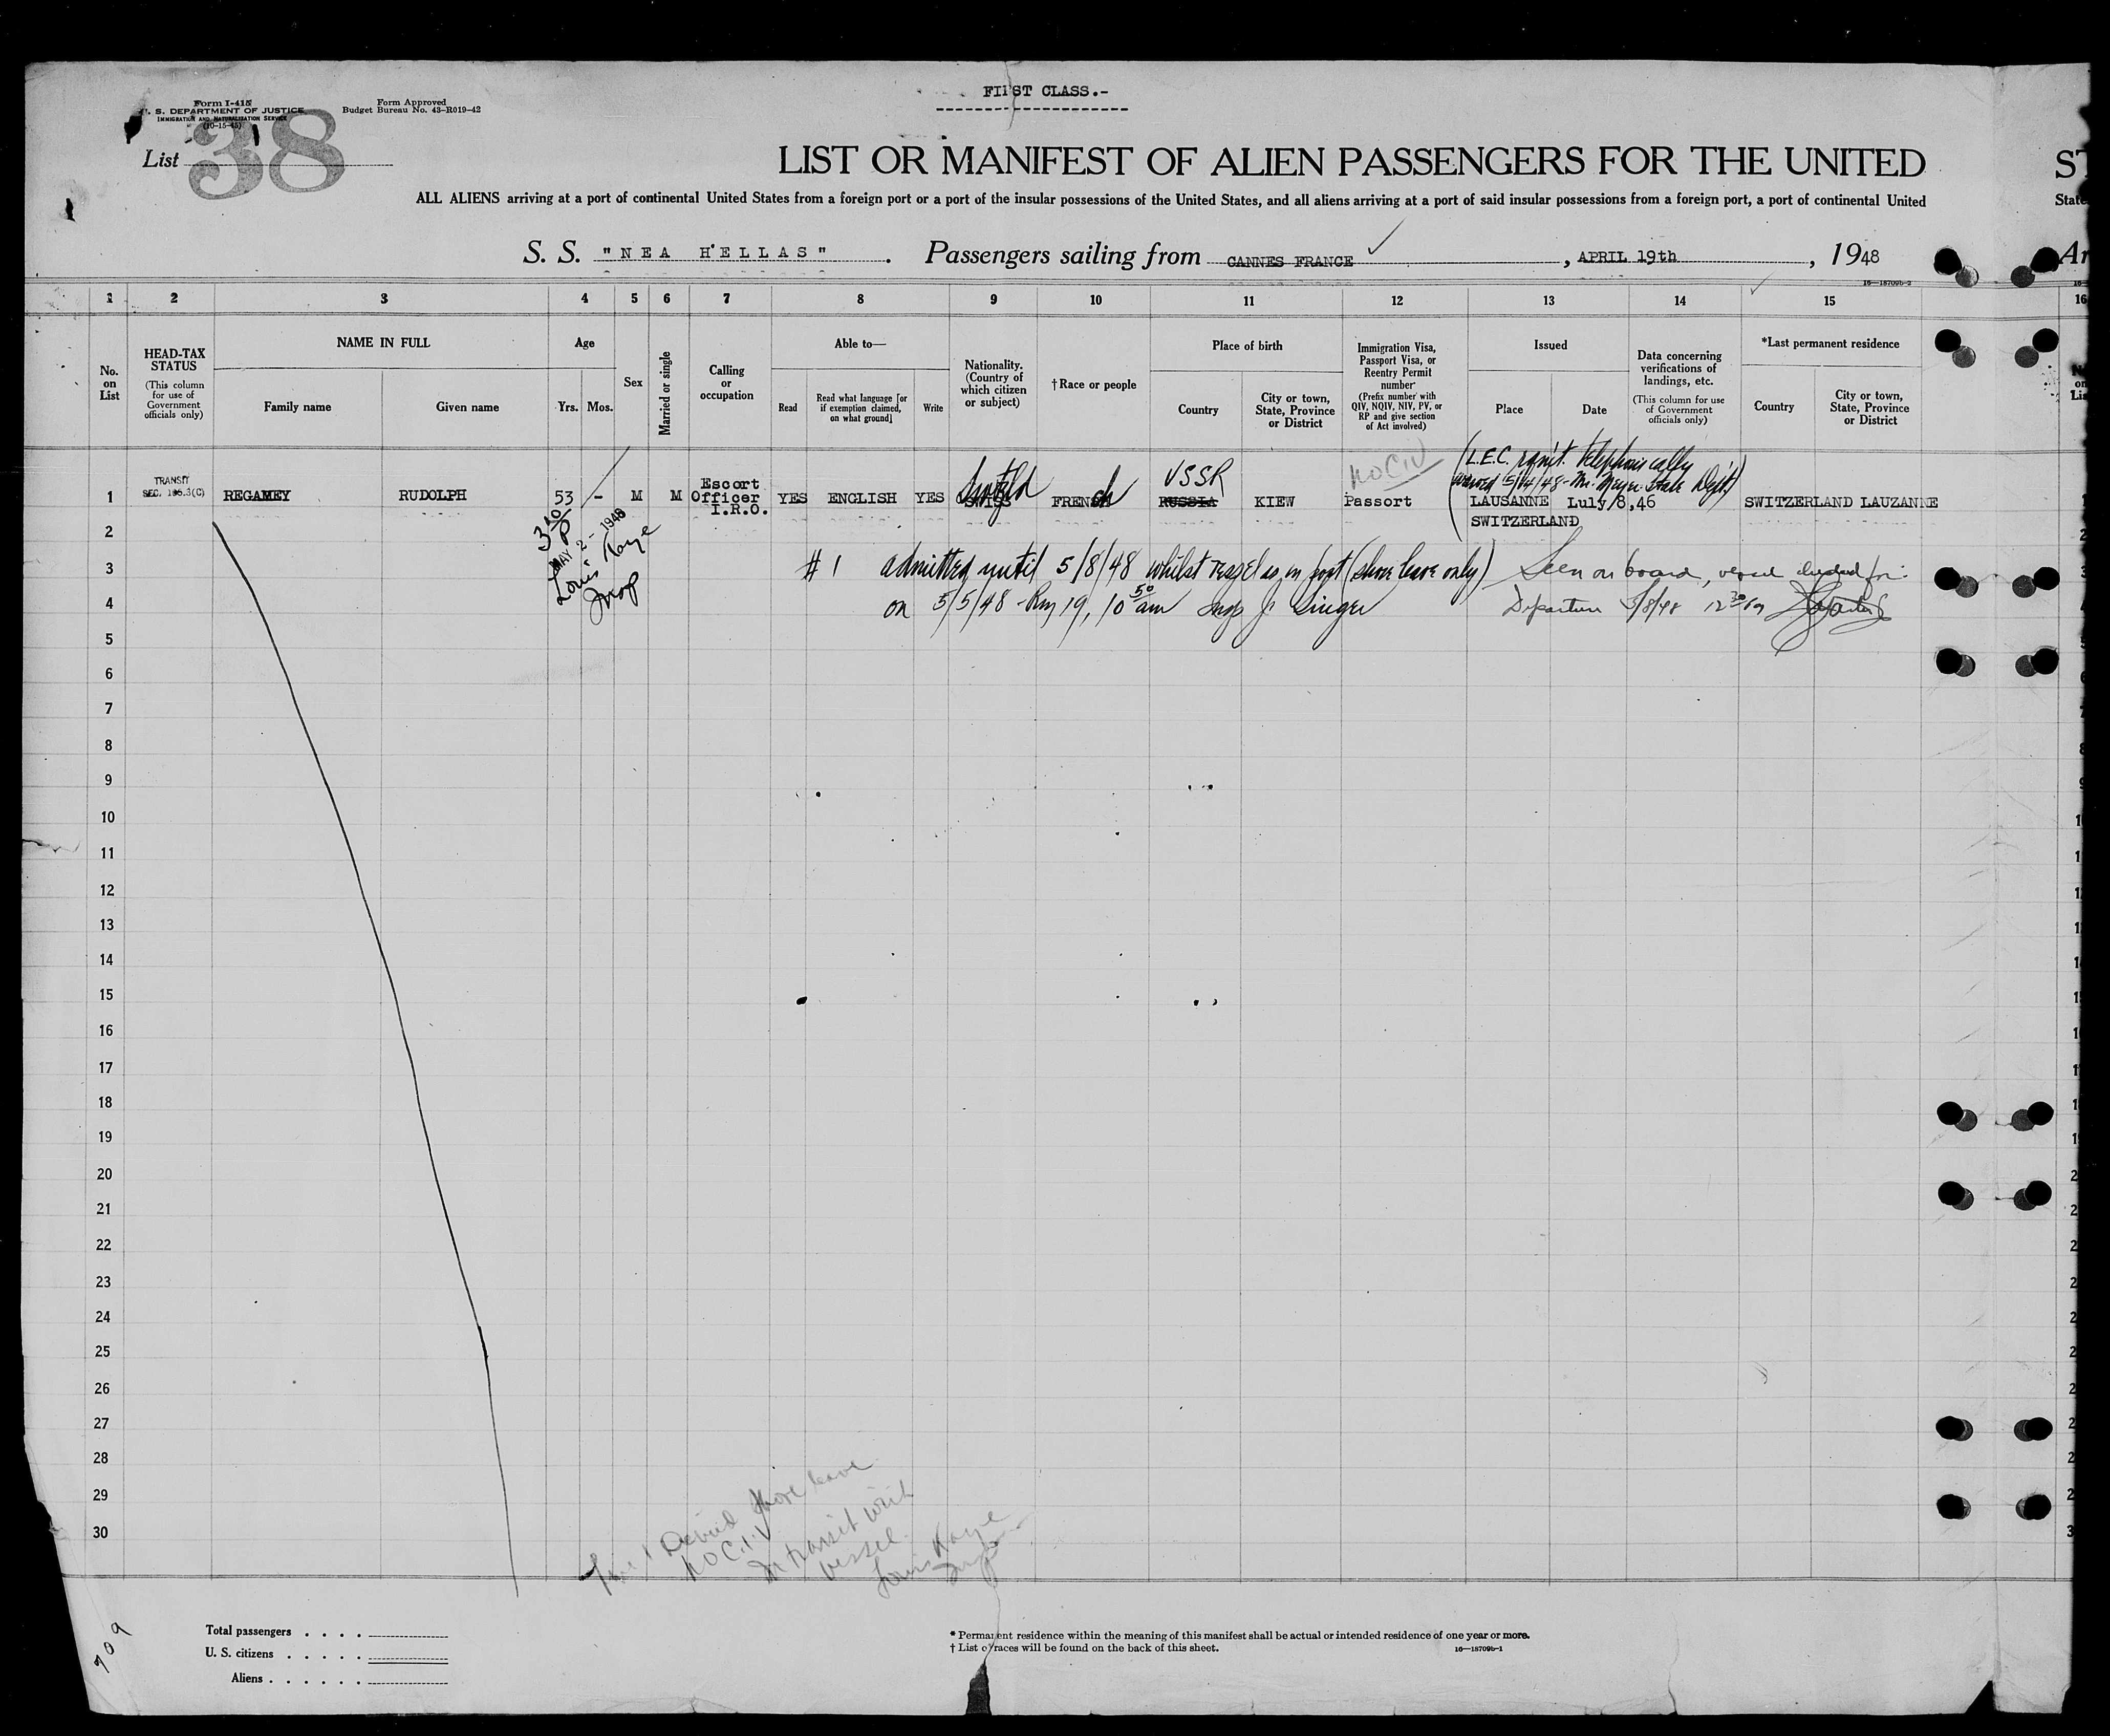 FIRST CLASS.-
Form I-415
U. S. DEPARTMENT OF JUSTICE
IMMIGRATION AND NATURALIZATION SERVICE
(10-15-45)
Form Approved
Budget Bureau No. 43-R019-42
List 38
LIST OR MANIFEST OF ALIEN PASSENGERS FOR THE UNITED
ST
ALL ALIENS arriving at a port of continental United States from a foreign port or a port of the insular possessions of the United States, and all aliens arriving at a port of said insular possessions from a foreign port, a port of continental United
State
S. S. "NEA HELLAS". Passengers sailing from CANNES FRANCE, APRIL 19th, 1948
Ar
16—18709b-2
1 2 3 4 5 6 7 8 9 10 11 12 13 14 15 16
No. on List
HEAD-TAX STATUS
(This column for use of Government officials only)
NAME IN FULL
Family name
Given name
Age
Yrs. Mos.
Sex
Married or single
Calling or occupation
Able to—
Read
Read what language [or if exemption claimed, on what ground]
Write
Nationality. (Country of which citizen or subject)
†Race or people
Place of birth
Country
City or town, State, Province or District
Immigration Visa, Passport Visa, or Reentry Permit number
(Prefix number with QIV, NQIV, NIV, PV, or RP and give section of Act involved)
Issued
Place
Date
Data concerning verifications of landings, etc.
(This column for use of Government officials only)
*Last permanent residence
Country
City or town, State, Province or District
(L.E.C. telephonically
waived 5/4/48 - Mr. State Dept.)
NO CIV
USSR
TRANSIT
SEC. 105.3(C)
1 REGAMEY RUDOLPH 53 - M M Escort Officer I.R.O. YES ENGLISH YES SWISS FRENCH RUSSIA KIEW Passort LAUSANNE Luly/8,46 SWITZERLAND LAUZANNE
SWITZERLAND
2
3 10 P
MAY 2 - 1948
Louis Kaye
Insp
3 #1 admitted until 5/8/48 whilst vessel is in port (shore leave only) Seen on board, vessel cleared for
4 on 5/5/48 - Rm 19, 10 50 am Insp J. Singer Departure 5/8/48 12 30
5
6
7
8
9
10
11
12
13
14
15
16
17
18
19
20
21
22
23
24
25
26
27
28
29
30
Line 1 Denied shore leave
NO C.I.V
In transit with
vessel.
Louis Kaye
Insp
709
Total passengers
U. S. citizens
Aliens
* Permanent residence within the meaning of this manifest shall be actual or intended residence of one year or more.
† List of races will be found on the back of this sheet.
16—18709b-1